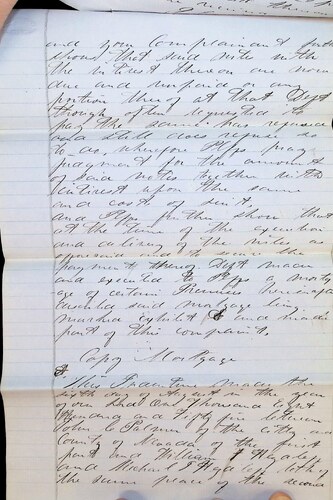 and your Complainant further
shows that said notes with
the interest thereon are now
due and unpaid or any
portion thereof at that Deft
though often requested to
pay the same has refused
and still does refuse so
to do wherefore Plffs pray
payment for the amount
of said notes together with
interest upon the same
and costs of suit.
and Plffs further show that
at the time of the execution
and delivery of the notes as
aforesaid and to secure the
payment thereof Deft made
and executed to Plffs a mortg
age of certain
said mortgage being
marked exhibit & and made
part of this complaint.
Copy Mortgage
This Indenture made the
day of August in the year
of our Lord one thousand eight
hundred and fifty six between
John C. Palmer of the city and
County of Nevada of the first
part and William
and Michael both of
the same place of the second